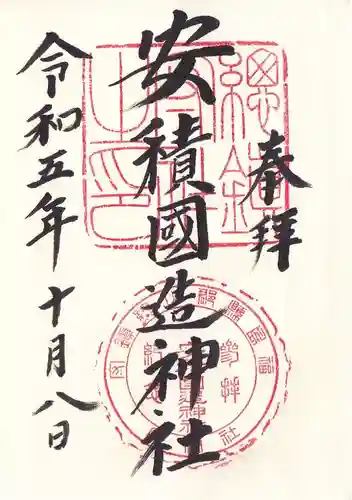 奉拝
安積國造神社
令和五年十月八日